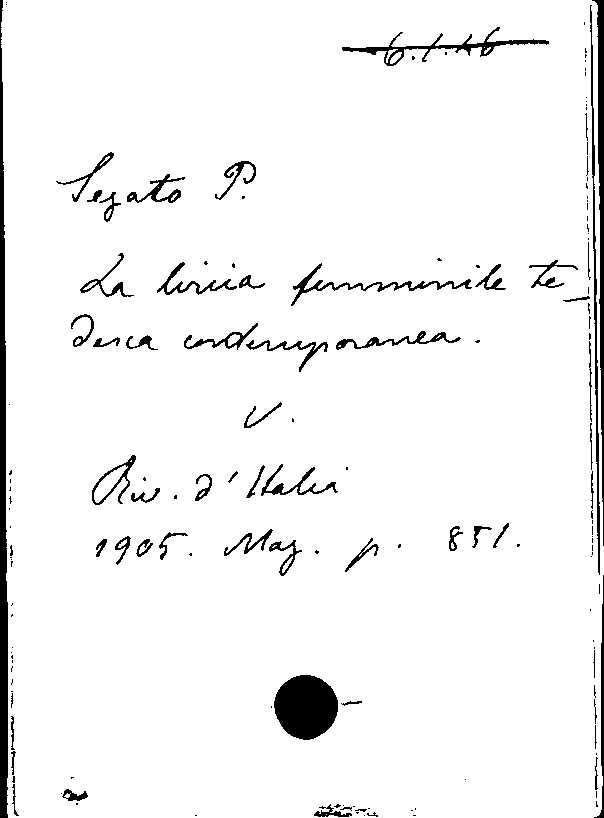 6.1.46
Segato P.
La lirica femminile te_
desca contemporanea.
V.
Riv. d'Italia
1905. Mag. p. 851.